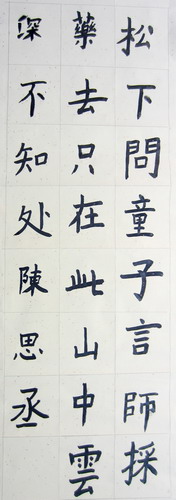 松下問童子言師採
藥去只在此山中雲
深不知处陳思丞